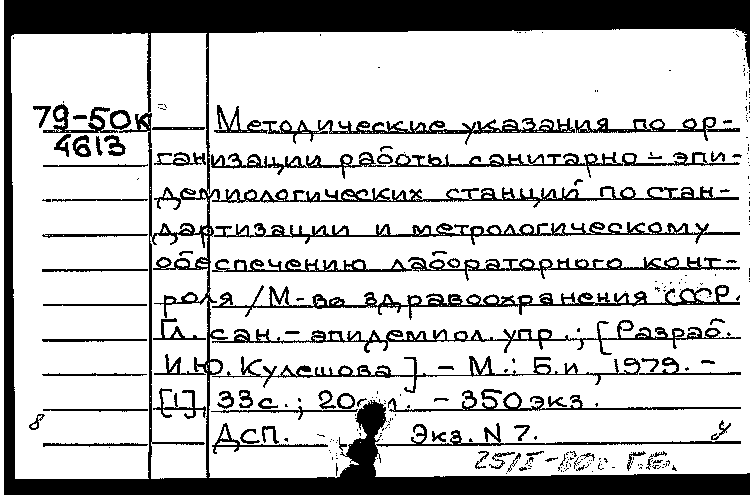 79-50к Методические указания по ор-
4613 ганизации работы санитарно-эпи-
демиологических станций по стан-
дартизации и метрологическому
обеспечению лабораторного конт-
роля / М-во здравоохранения СССР.
Гл. сан.-эпидемиол. упр.; [Разраб.
И.Ю. Кулешова]. - М.: Б.и., 1979. -
[1], 33 с.; 20 см. - 350 экз.
8 ДСП. Экз. N 7. у
25/I-80г. Г.Б.